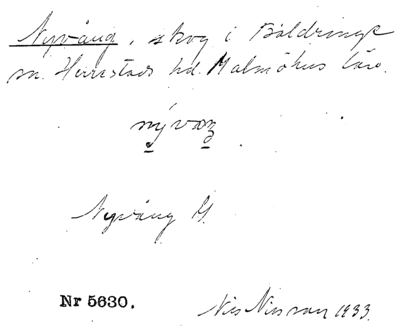 Nyvång, skog i Baldringe
sn. Herrestads hd. Malmöhus län.
nývaŋ
Nyvång
Nr 5630.
Nils Nilsson 1933.